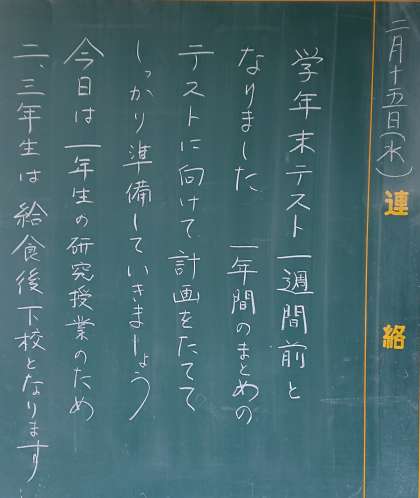 二月十五日(水)
連絡
学年末テスト一週間前と
なりました 一年間のまとめの
テストに向けて計画をたてて
しっかり準備していきましょう
今日は一年生の研究授業のため
二、三年生は給食後下校となります